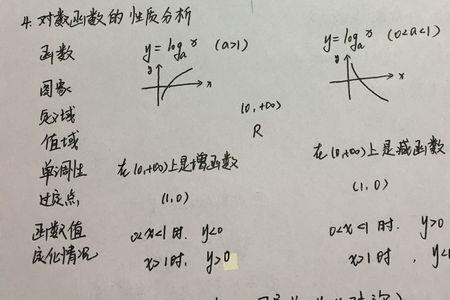 4. 对数函数的性质分析
函数 y=logₐx (a>1) y=logₐx (0<a<1)
图象 y x y x
定义域 (0,+∞)
值域 R
单调性 在(0,+∞)上是增函数 在(0,+∞)上是减函数
过定点 (1,0) (1,0)
函数值 0<x<1时. y<0 0<x<1时. y>0
变化情况 x>1时, y>0 x>1时, y<